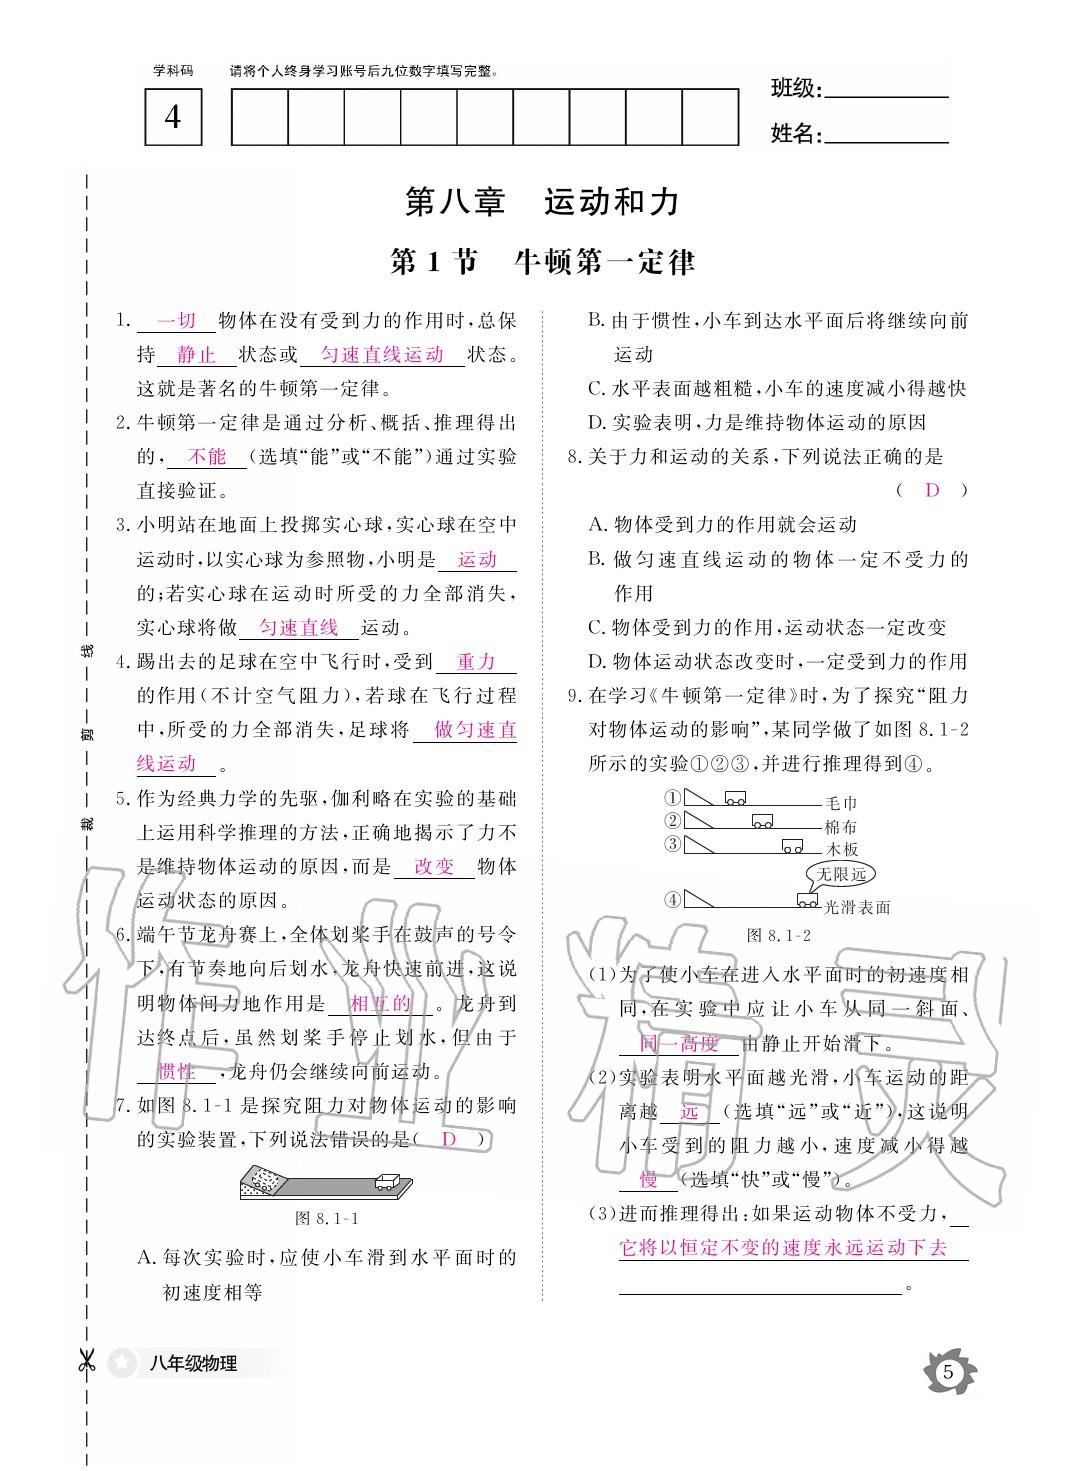 学科码 请将个人终身学习账号后九位数字填写完整。
4
班级:
姓名:
第八章 运动和力
第1节 牛顿第一定律
1. 一切 物体在没有受到力的作用时,总保
持 静止 状态或 匀速直线运动 状态。
这就是著名的牛顿第一定律。
2. 牛顿第一定律是通过分析、概括、推理得出
的, 不能 (选填“能”或“不能”)通过实验
直接验证。
3. 小明站在地面上投掷实心球,实心球在空中
运动时,以实心球为参照物,小明是 运动
的;若实心球在运动时所受的力全部消失,
实心球将做 匀速直线 运动。
4. 踢出去的足球在空中飞行时,受到 重力
的作用(不计空气阻力),若球在飞行过程
中,所受的力全部消失,足球将 做匀速直
线运动 。
5. 作为经典力学的先驱,伽利略在实验的基础
上运用科学推理的方法,正确地揭示了力不
是维持物体运动的原因,而是 改变 物体
运动状态的原因。
6. 端午节龙舟赛上,全体划桨手在鼓声的号令
下,有节奏地向后划水,龙舟快速前进,这说
明物体间力地作用是 相互的 。龙舟到
达终点后,虽然划桨手停止划水,但由于
惯性 ,龙舟仍会继续向前运动。
7. 如图 8.1-1 是探究阻力对物体运动的影响
的实验装置,下列说法错误的是( D )
图 8.1-1
A. 每次实验时,应使小车滑到水平面时的
初速度相等
B. 由于惯性,小车到达水平面后将继续向前
运动
C. 水平表面越粗糙,小车的速度减小得越快
D. 实验表明,力是维持物体运动的原因
8. 关于力和运动的关系,下列说法正确的是
( D )
A. 物体受到力的作用就会运动
B. 做匀速直线运动的物体一定不受力的
作用
C. 物体受到力的作用,运动状态一定改变
D. 物体运动状态改变时,一定受到力的作用
9. 在学习《牛顿第一定律》时,为了探究“阻力
对物体运动的影响”,某同学做了如图 8.1-2
所示的实验①②③,并进行推理得到④。
① 毛巾
② 棉布
③ 木板
无限远
④ 光滑表面
图 8.1-2
(1)为了使小车在进入水平面时的初速度相
同,在实验中应让小车从同一斜面、
同一高度 由静止开始滑下。
(2)实验表明水平面越光滑,小车运动的距
离越 远 (选填“远”或“近”),这说明
小车受到的阻力越小,速度减小得越
慢 (选填“快”或“慢”)。
(3)进而推理得出:如果运动物体不受力,
它将以恒定不变的速度永远运动下去
。
线
剪
裁
作业精灵
八年级物理
5